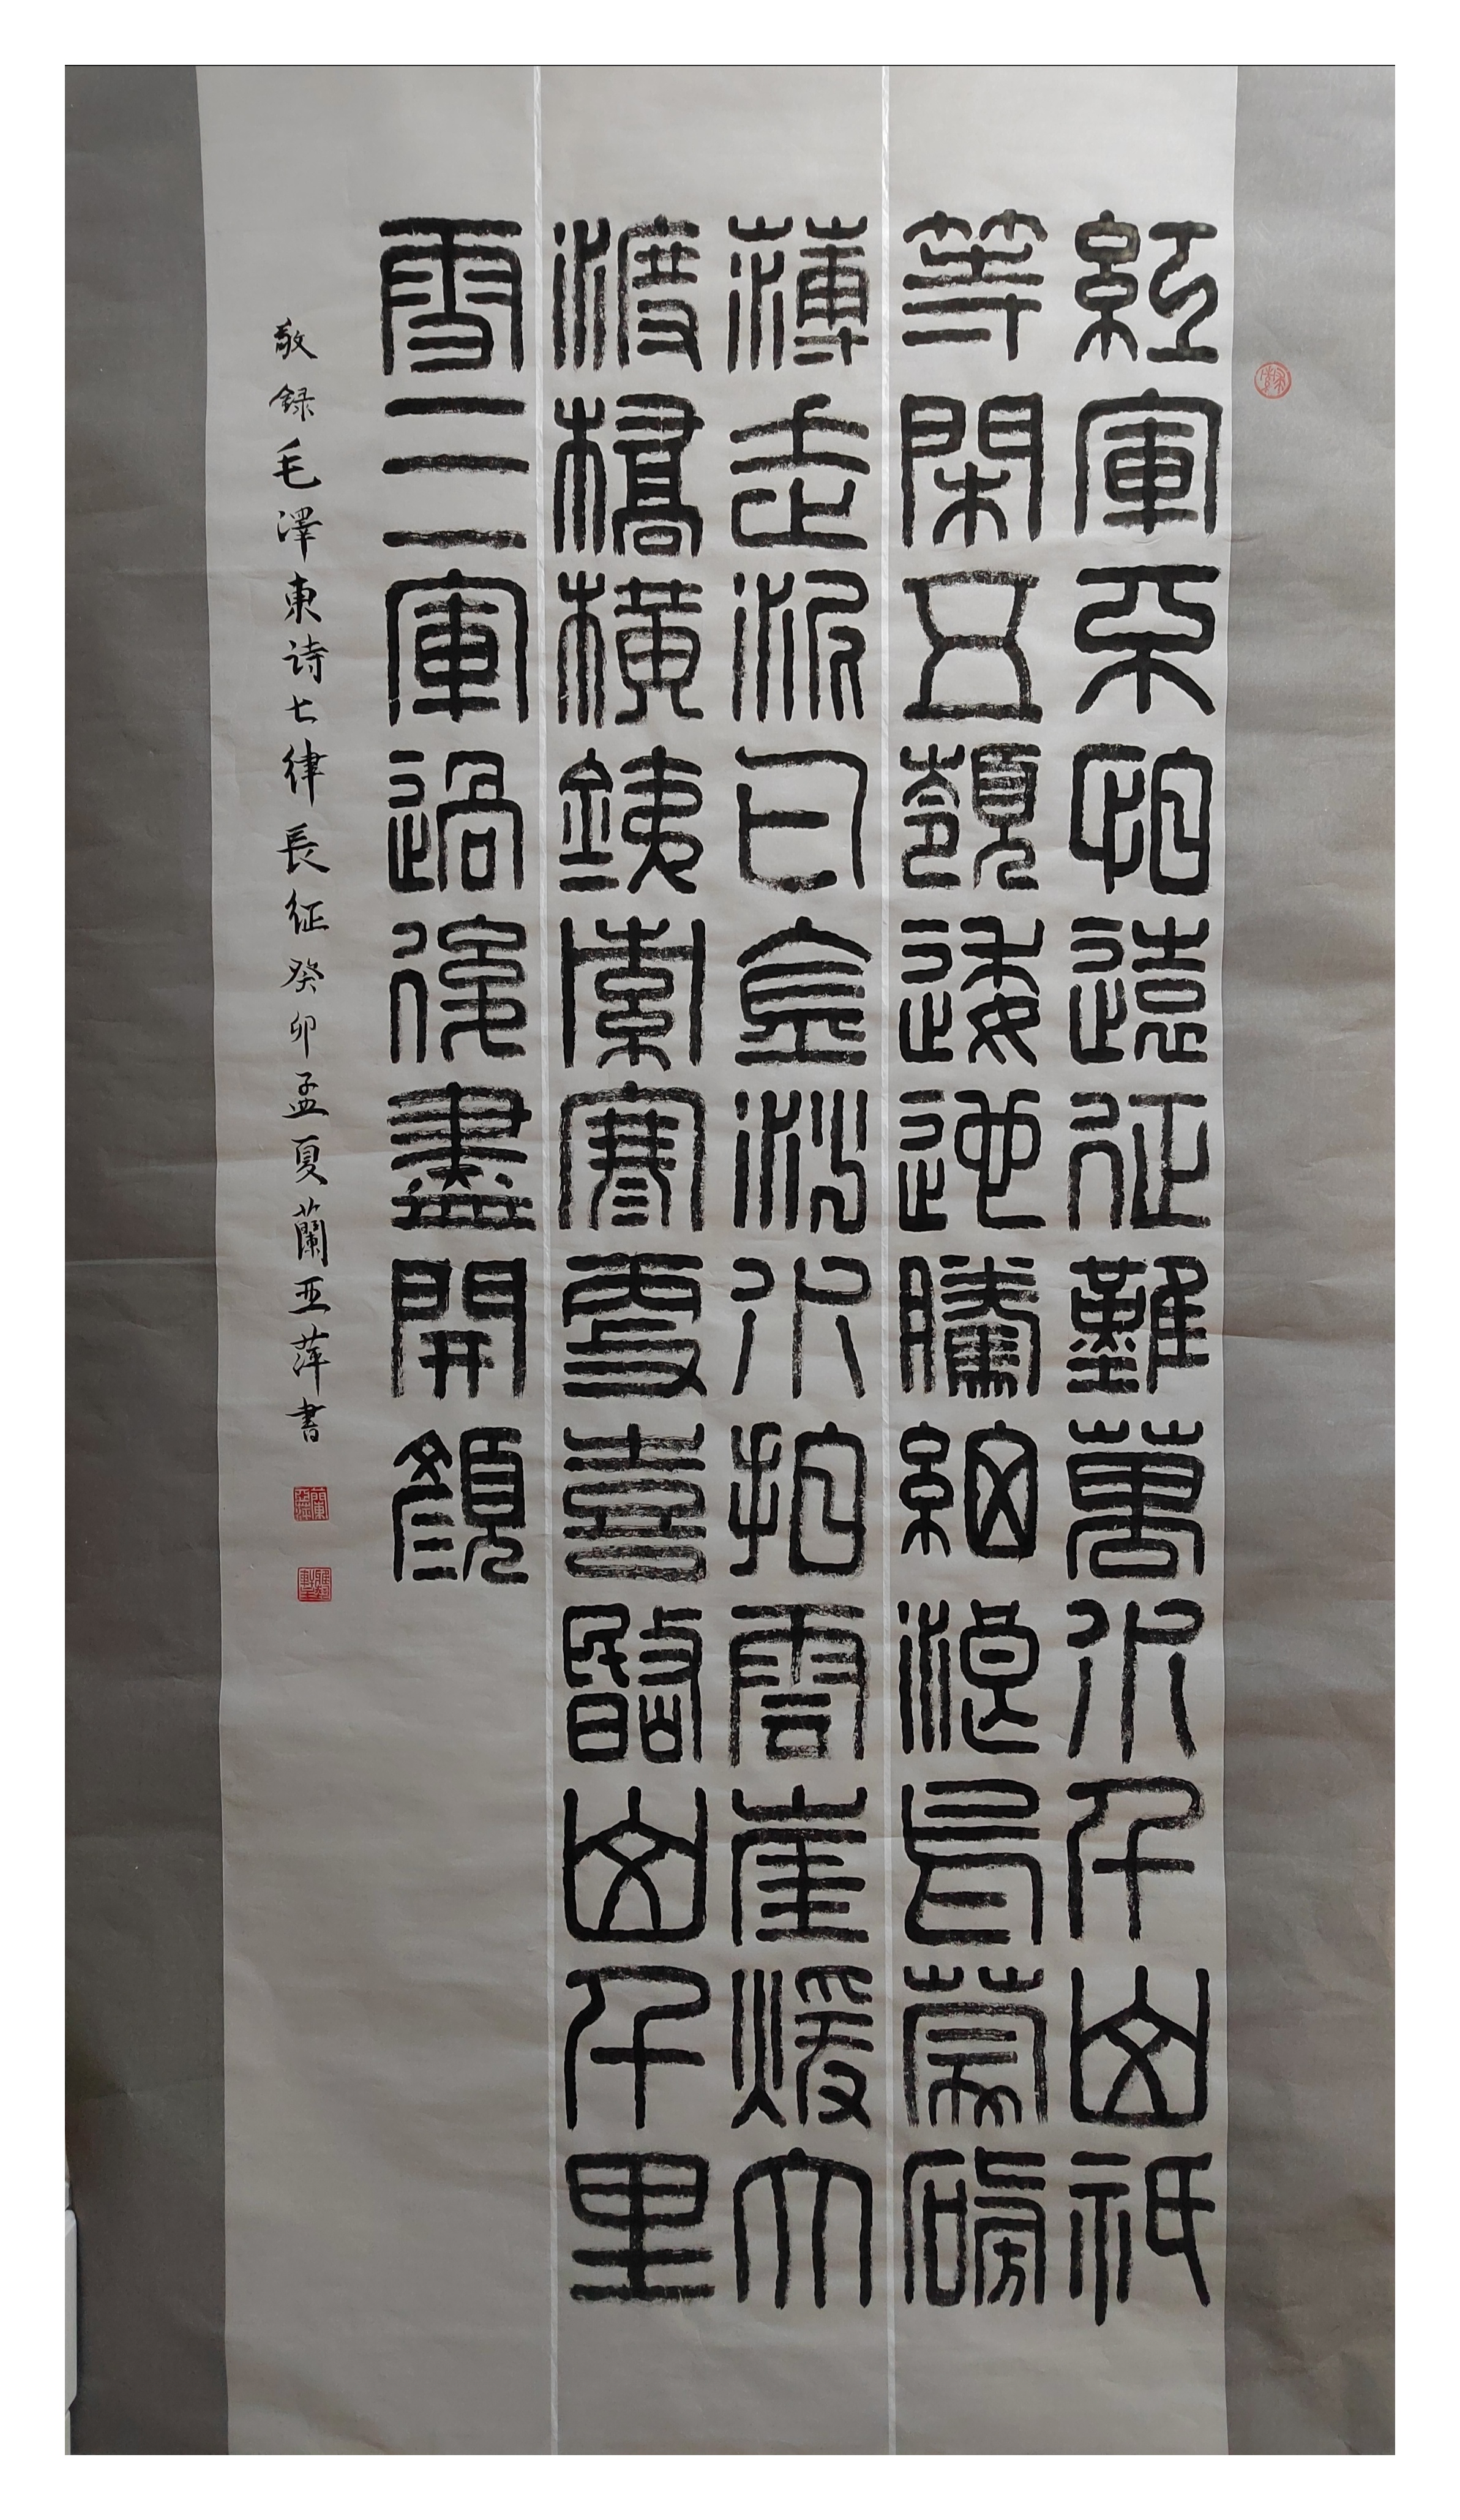 紅軍不怕遠征難萬水千山祇
等閑五嶺逶迤騰細浪烏蒙磅
薄走泥丸金沙水拍雲崖煖大
渡橋橫銕索寒更喜岷山千里
雪三軍過後盡開顏
敬録毛澤東诗七律長征癸卯孟夏蘭亚萍書
蘭亞萍